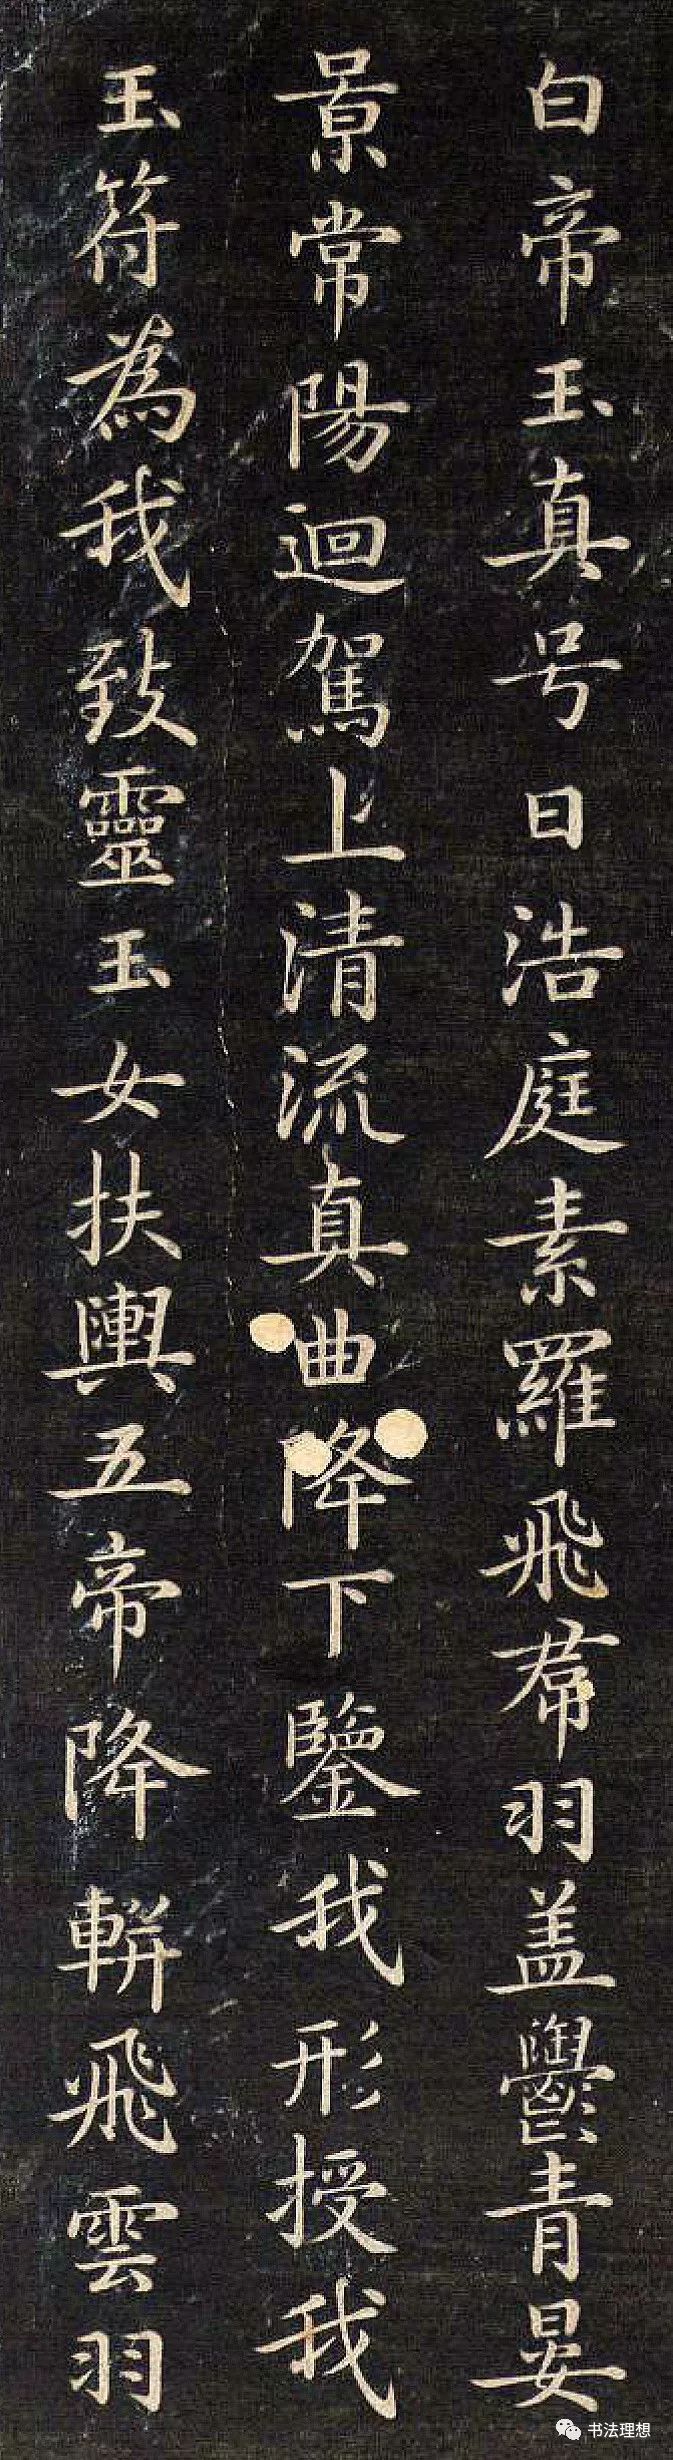 白帝玉真号曰浩庭素羅飛帬羽盖鬱青晏
景常陽迴駕上清流真曲降下鑒我形授我
玉符為我致靈玉女扶輿五帝降軿飛雲羽
书法理想